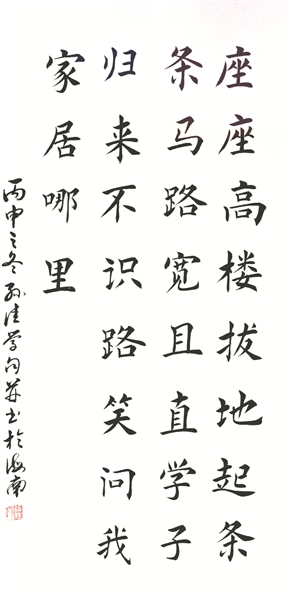 座座高楼拔地起条
条马路宽且直学子
归来不识路笑问我
家居哪里
丙申之冬孙佳学句并书于海南